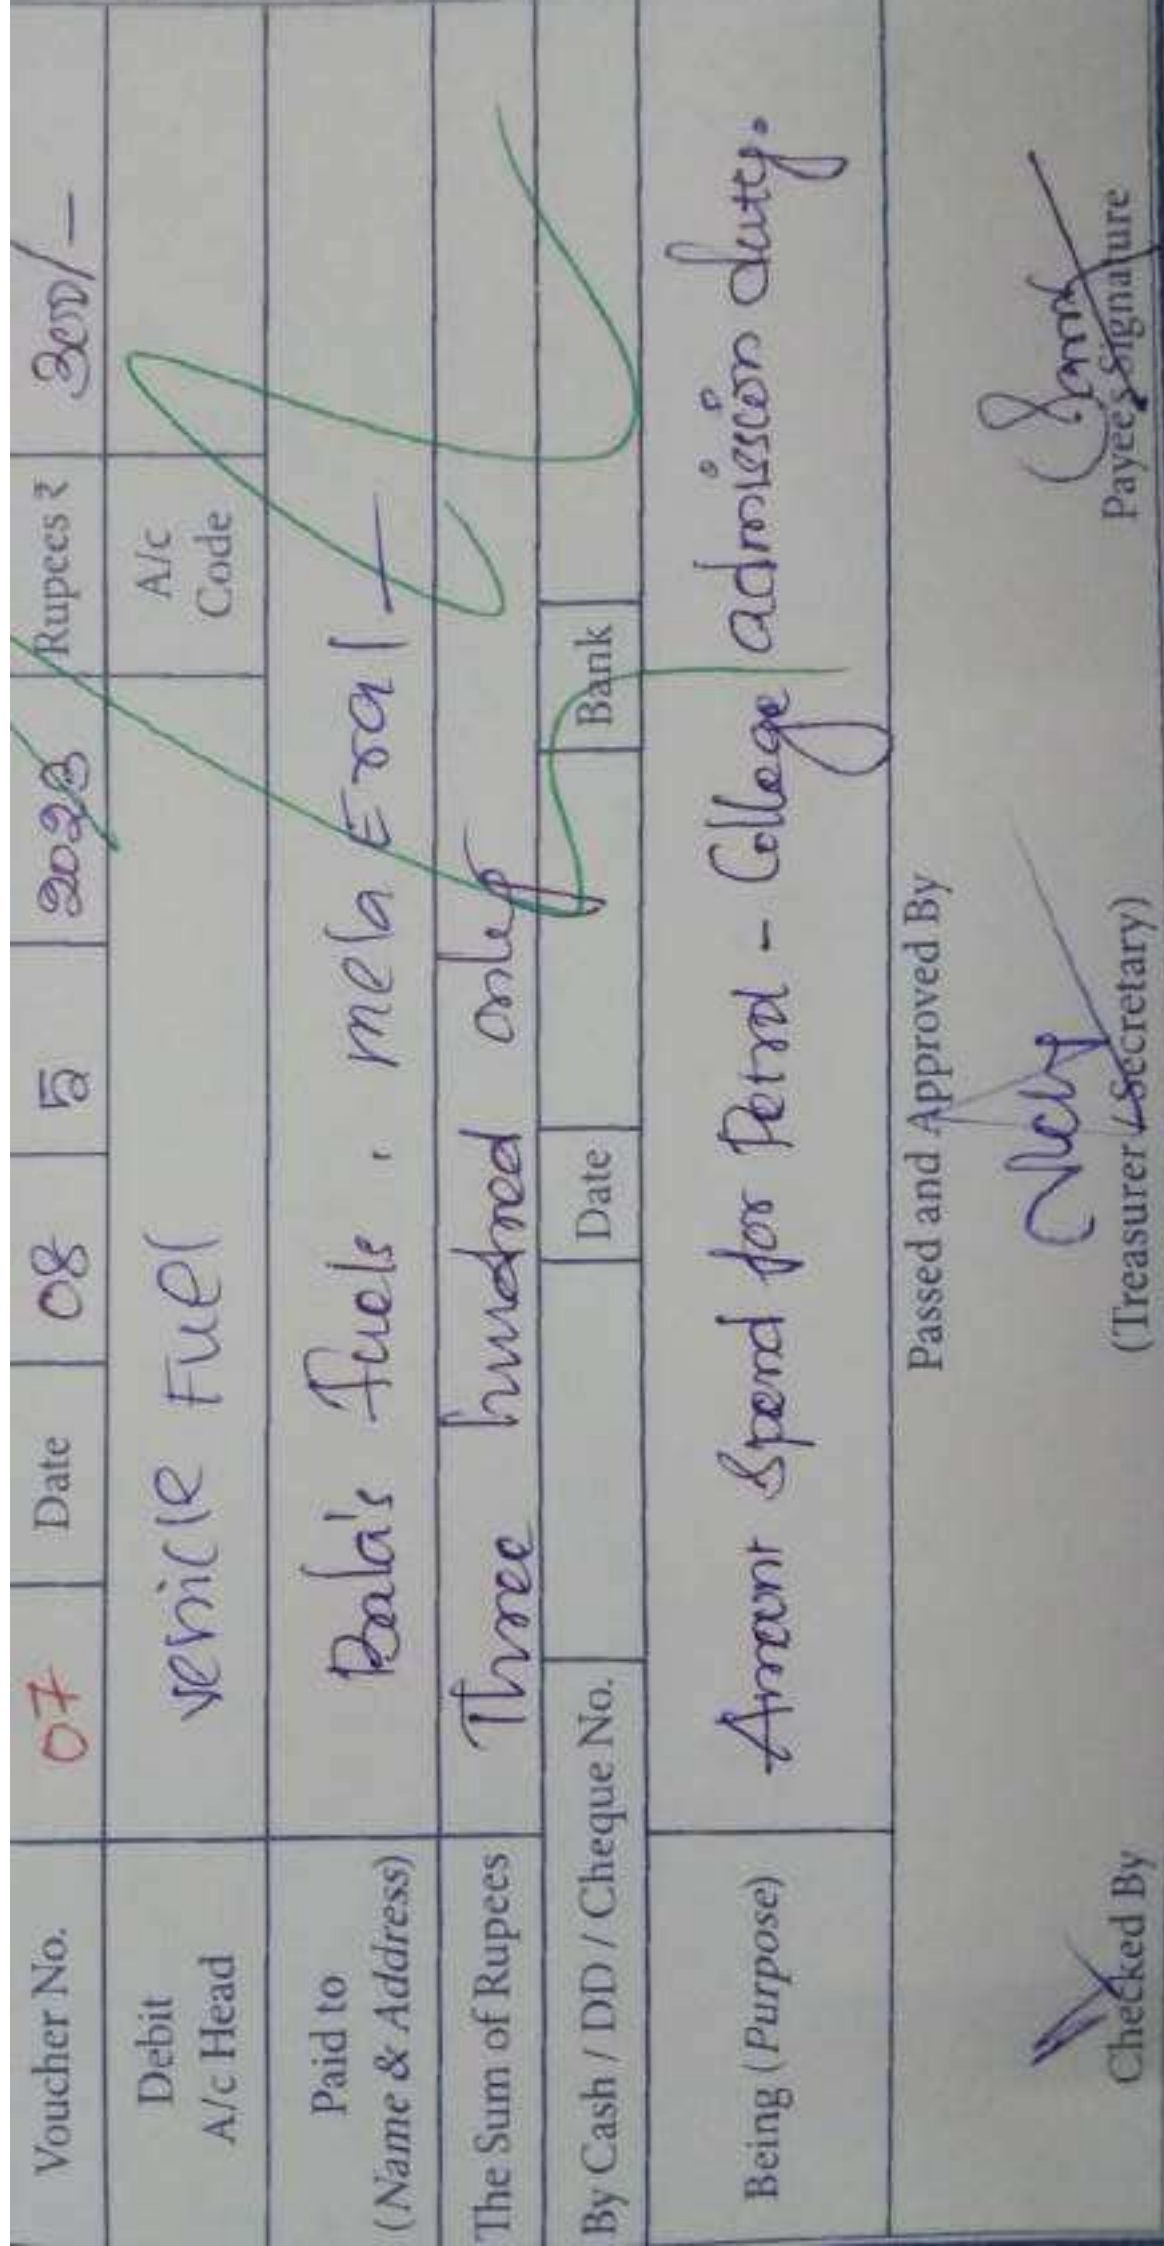 Voucher No. 07 Date 08 5 2023 Rupees ₹ 300/-
Debit A/c Head Vehicle Fuel A/c Code
Paid to (Name & Address) Bala's Fuels, Mela Eral
The Sum of Rupees Three hundred only
By Cash / DD / Cheque No. Date Bank
Being (Purpose) Amount Spend for Petrol - College admission duty.
Passed and Approved By
Checked By (Treasurer / Secretary) Payee's Signature